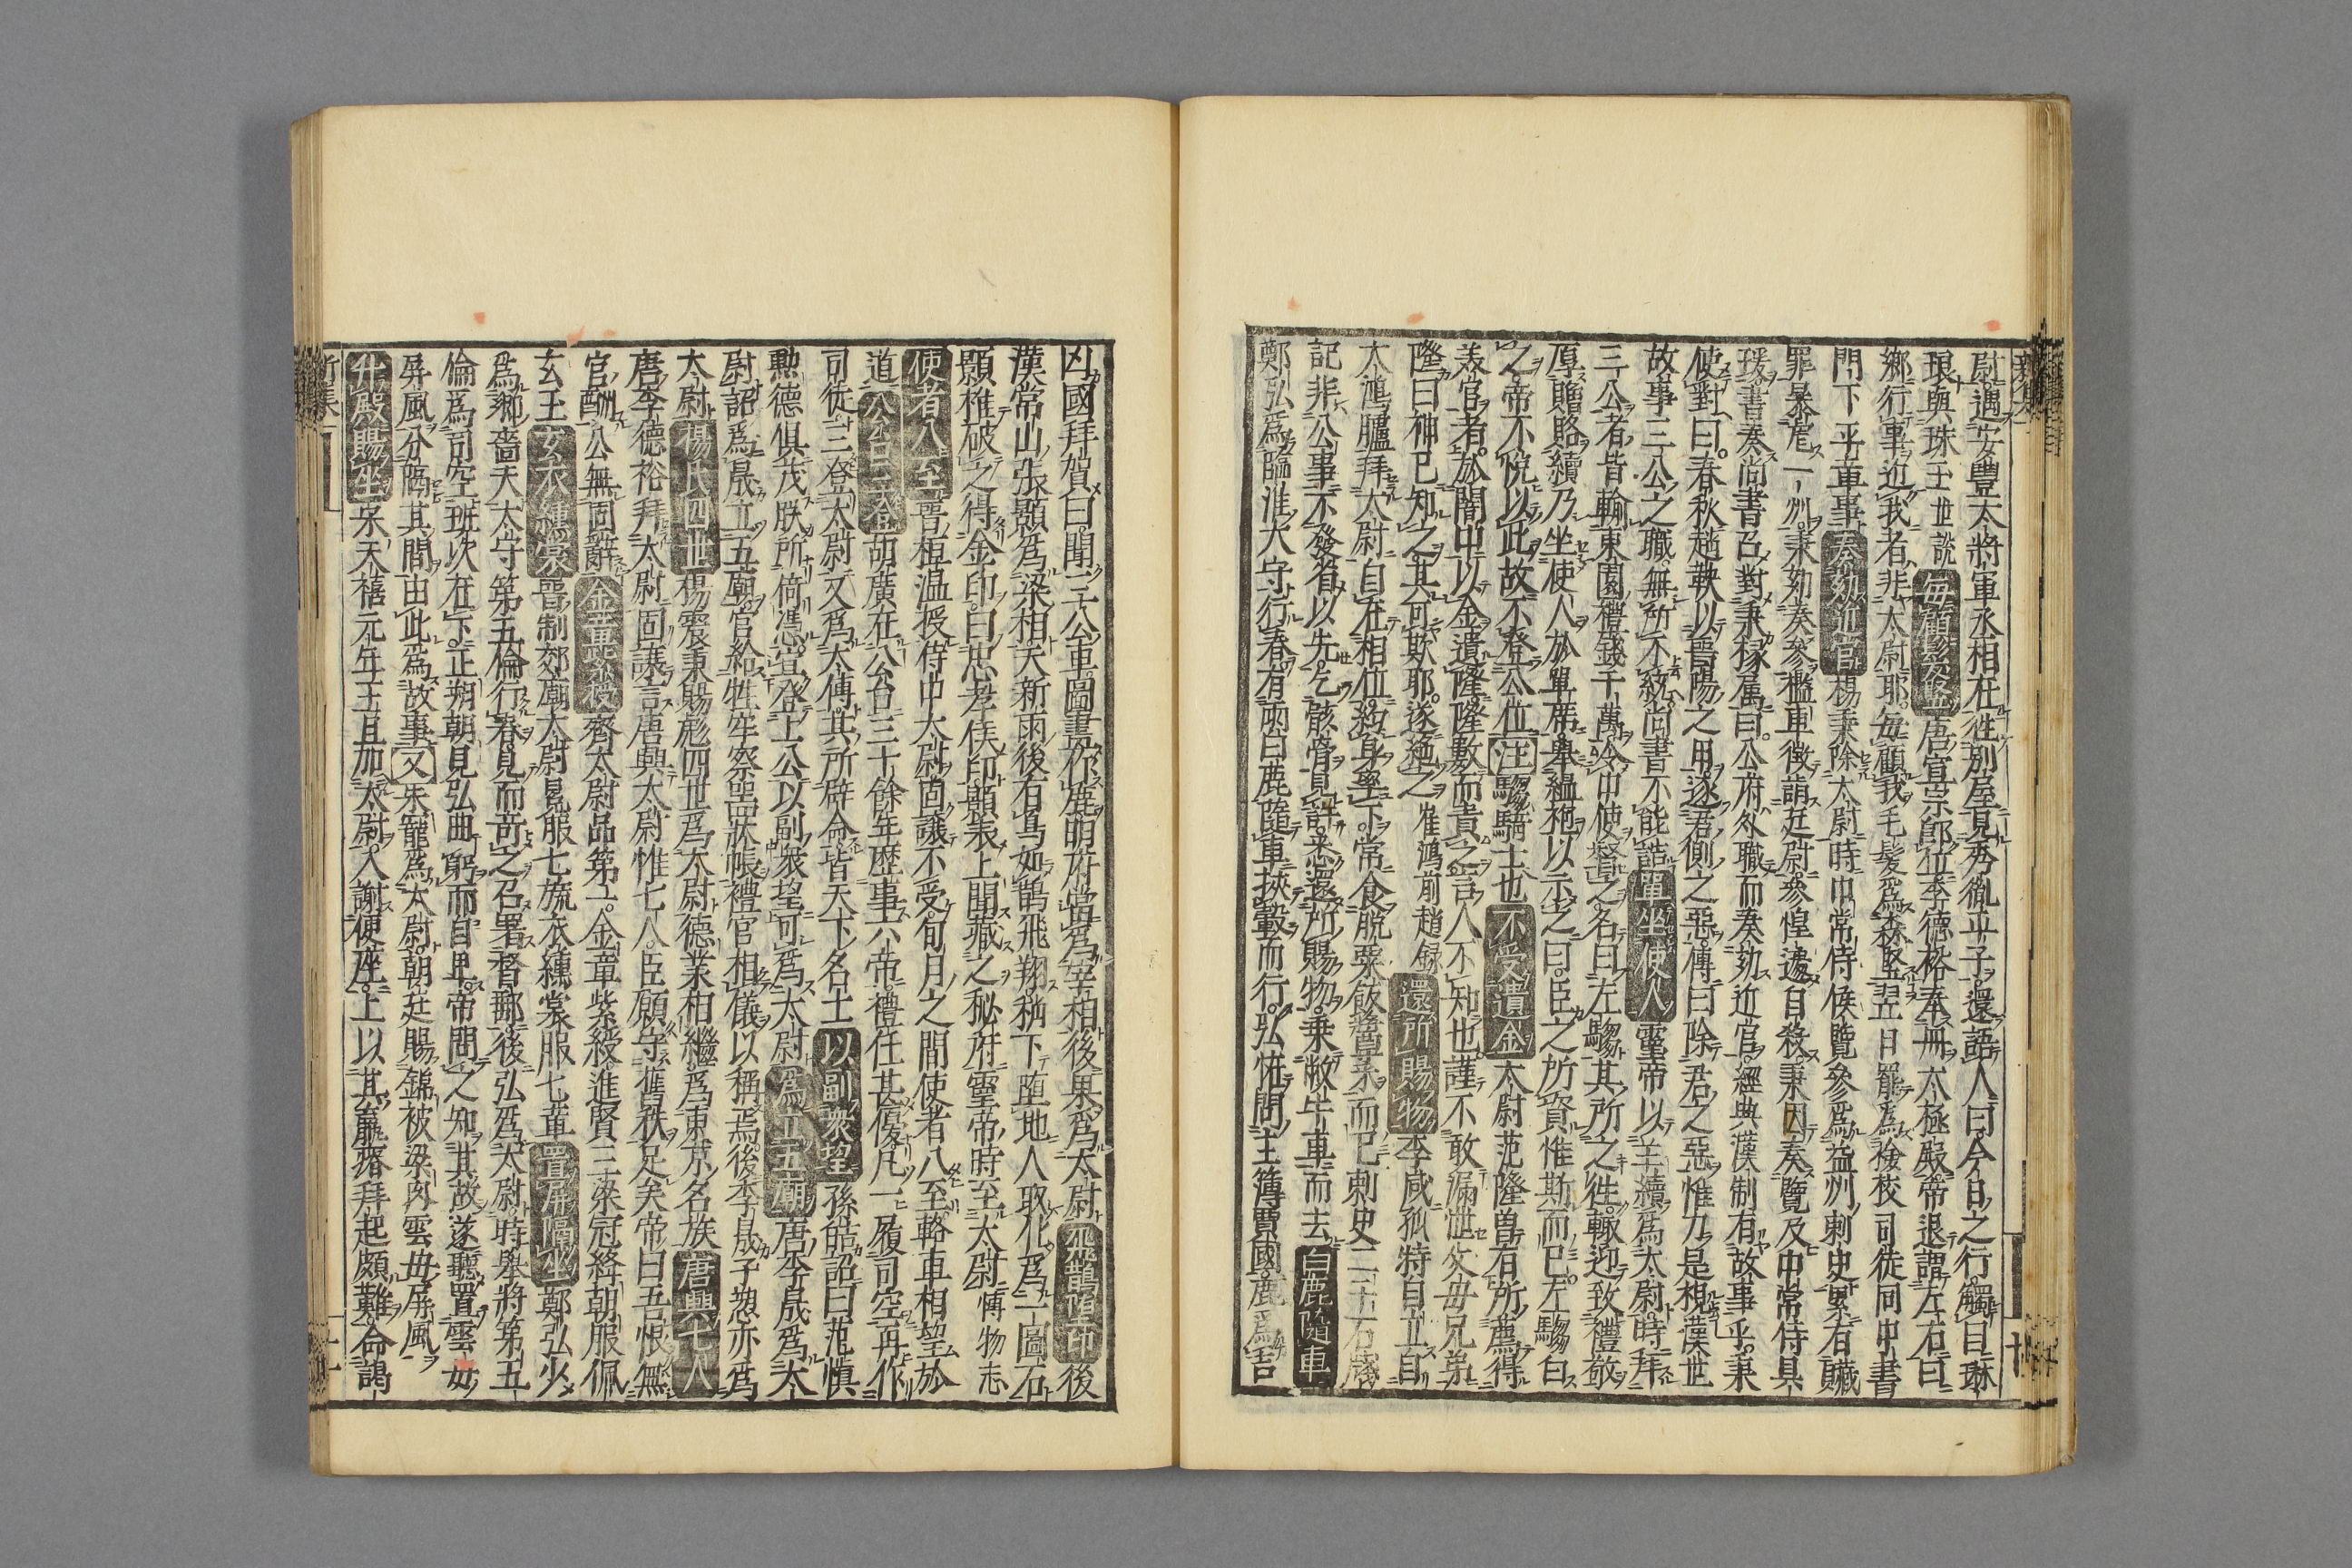 尉遇安豊太將軍丞相在徃別屋見秀徹平子還語人曰今日之行觸目琳
琅與珠玉世說每顧髮竪唐宣宗郎位李德裕奉冊太極殿帝退謂左右曰
鄉行事近我者非太尉耶每顧我毛髮爲森竪翌日罷爲檢校司徒同中書
門下平章事奏劾近官楊秉除太尉時中常侍侯覽參爲益州刺史累有贓
罪暴虐一州秉劾奏參檻車徵詣廷尉參惶遽自殺秉因奏覽及中常侍具
瑗書奏尚書召對秉掾属曰公府外職而奏劾近官經典漢制有故事乎秉
使對曰春秋趙鞅以晉陽之甲逐君側之惡傳曰除君之惡惟力是視漢世
故事三公之職無所不統尚書不能詰單坐使人靈帝以羊續爲太尉時拜
三公者皆輸東園禮錢千萬令中使督之名曰左騶其所之徃輙迎致禮敬
厚贈賂續乃坐使人於單席舉縕袍以示之曰臣之所資惟斯而已左騶白
之帝不悅以此故不登公位注騶騎士也不受遺金太尉范隆曽有所薦得
美官者於闇中以金遺隆隆數而責之言人不知也謹不敢漏泄父母兄弟
隆曰神已知之其可欺耶遂絶之崔鴻前趙録還所賜物李咸孤特自立自
太鴻臚拜太尉自在相位約身率下常食脫粟飯醬菜而已刺史二千石牋
記非公事不發省以先乞骸骨見許悉還所賜物乗敝牛車而去白鹿隨車
鄭弘爲臨淮大守行春有兩白鹿隨車挾轂而行弘恠問主簿賈國鹿爲吉
凶國拜賀曰聞三公車圖畫作鹿明府當爲宰相後果爲太尉飛鵲墮印後
漢常山張顥爲梁相天新雨後有鳥如鵲飛翔稍下墮地人取化爲一圖石
顥椎破之得金印曰忠孝侯印顥表上聞藏之秘府靈帝時至太尉博物志
使者八至晉桓温授侍中太尉固讓不受旬月之間使者八至輅車相望於
道公台三登胡廣在公台三十餘年歷事六帝禮任甚優凡一履司空再作
司徒三登太尉又爲太傅其所辟命皆天下名士以副衆望孫皓詔曰范愼
勲德俱茂朕所倚憑宜登上公以副衆望可爲太尉爲立五廟唐李晟爲太
尉詔爲晟立五廟官給牲牢祭器牀帳禮官相儀以稱焉後李晟子愬亦爲
太尉楊氏四世楊震秉賜彪四世爲太尉德業相繼爲東京名族唐興七人
唐李德裕拜太尉固讓言唐興太尉惟七人臣願守舊秩足矣帝曰吾恨無
官酬公無固辭金章紫綬齊太尉品第一金章紫綬進賢三梁冠絳朝服佩
玄玉玄衣纁裳晉制郊廟太尉冕服七旒衣纁裳服七章置屏隔坐鄭弘少
爲鄉嗇夫太守第五倫行春見而竒之召署督郵後弘爲太尉時舉將第五
倫爲司空班次在下正朔朝見弘曲躬而自卑帝問之知其故遂聽置雲母
屏風分隔其間由此爲故事又朱寵爲太尉朝廷賜錦被梁肉雲母屏風
升殿賜坐宋天禧元年王旦加太尉入謝便座上以其羸瘠拜起頗難命謁